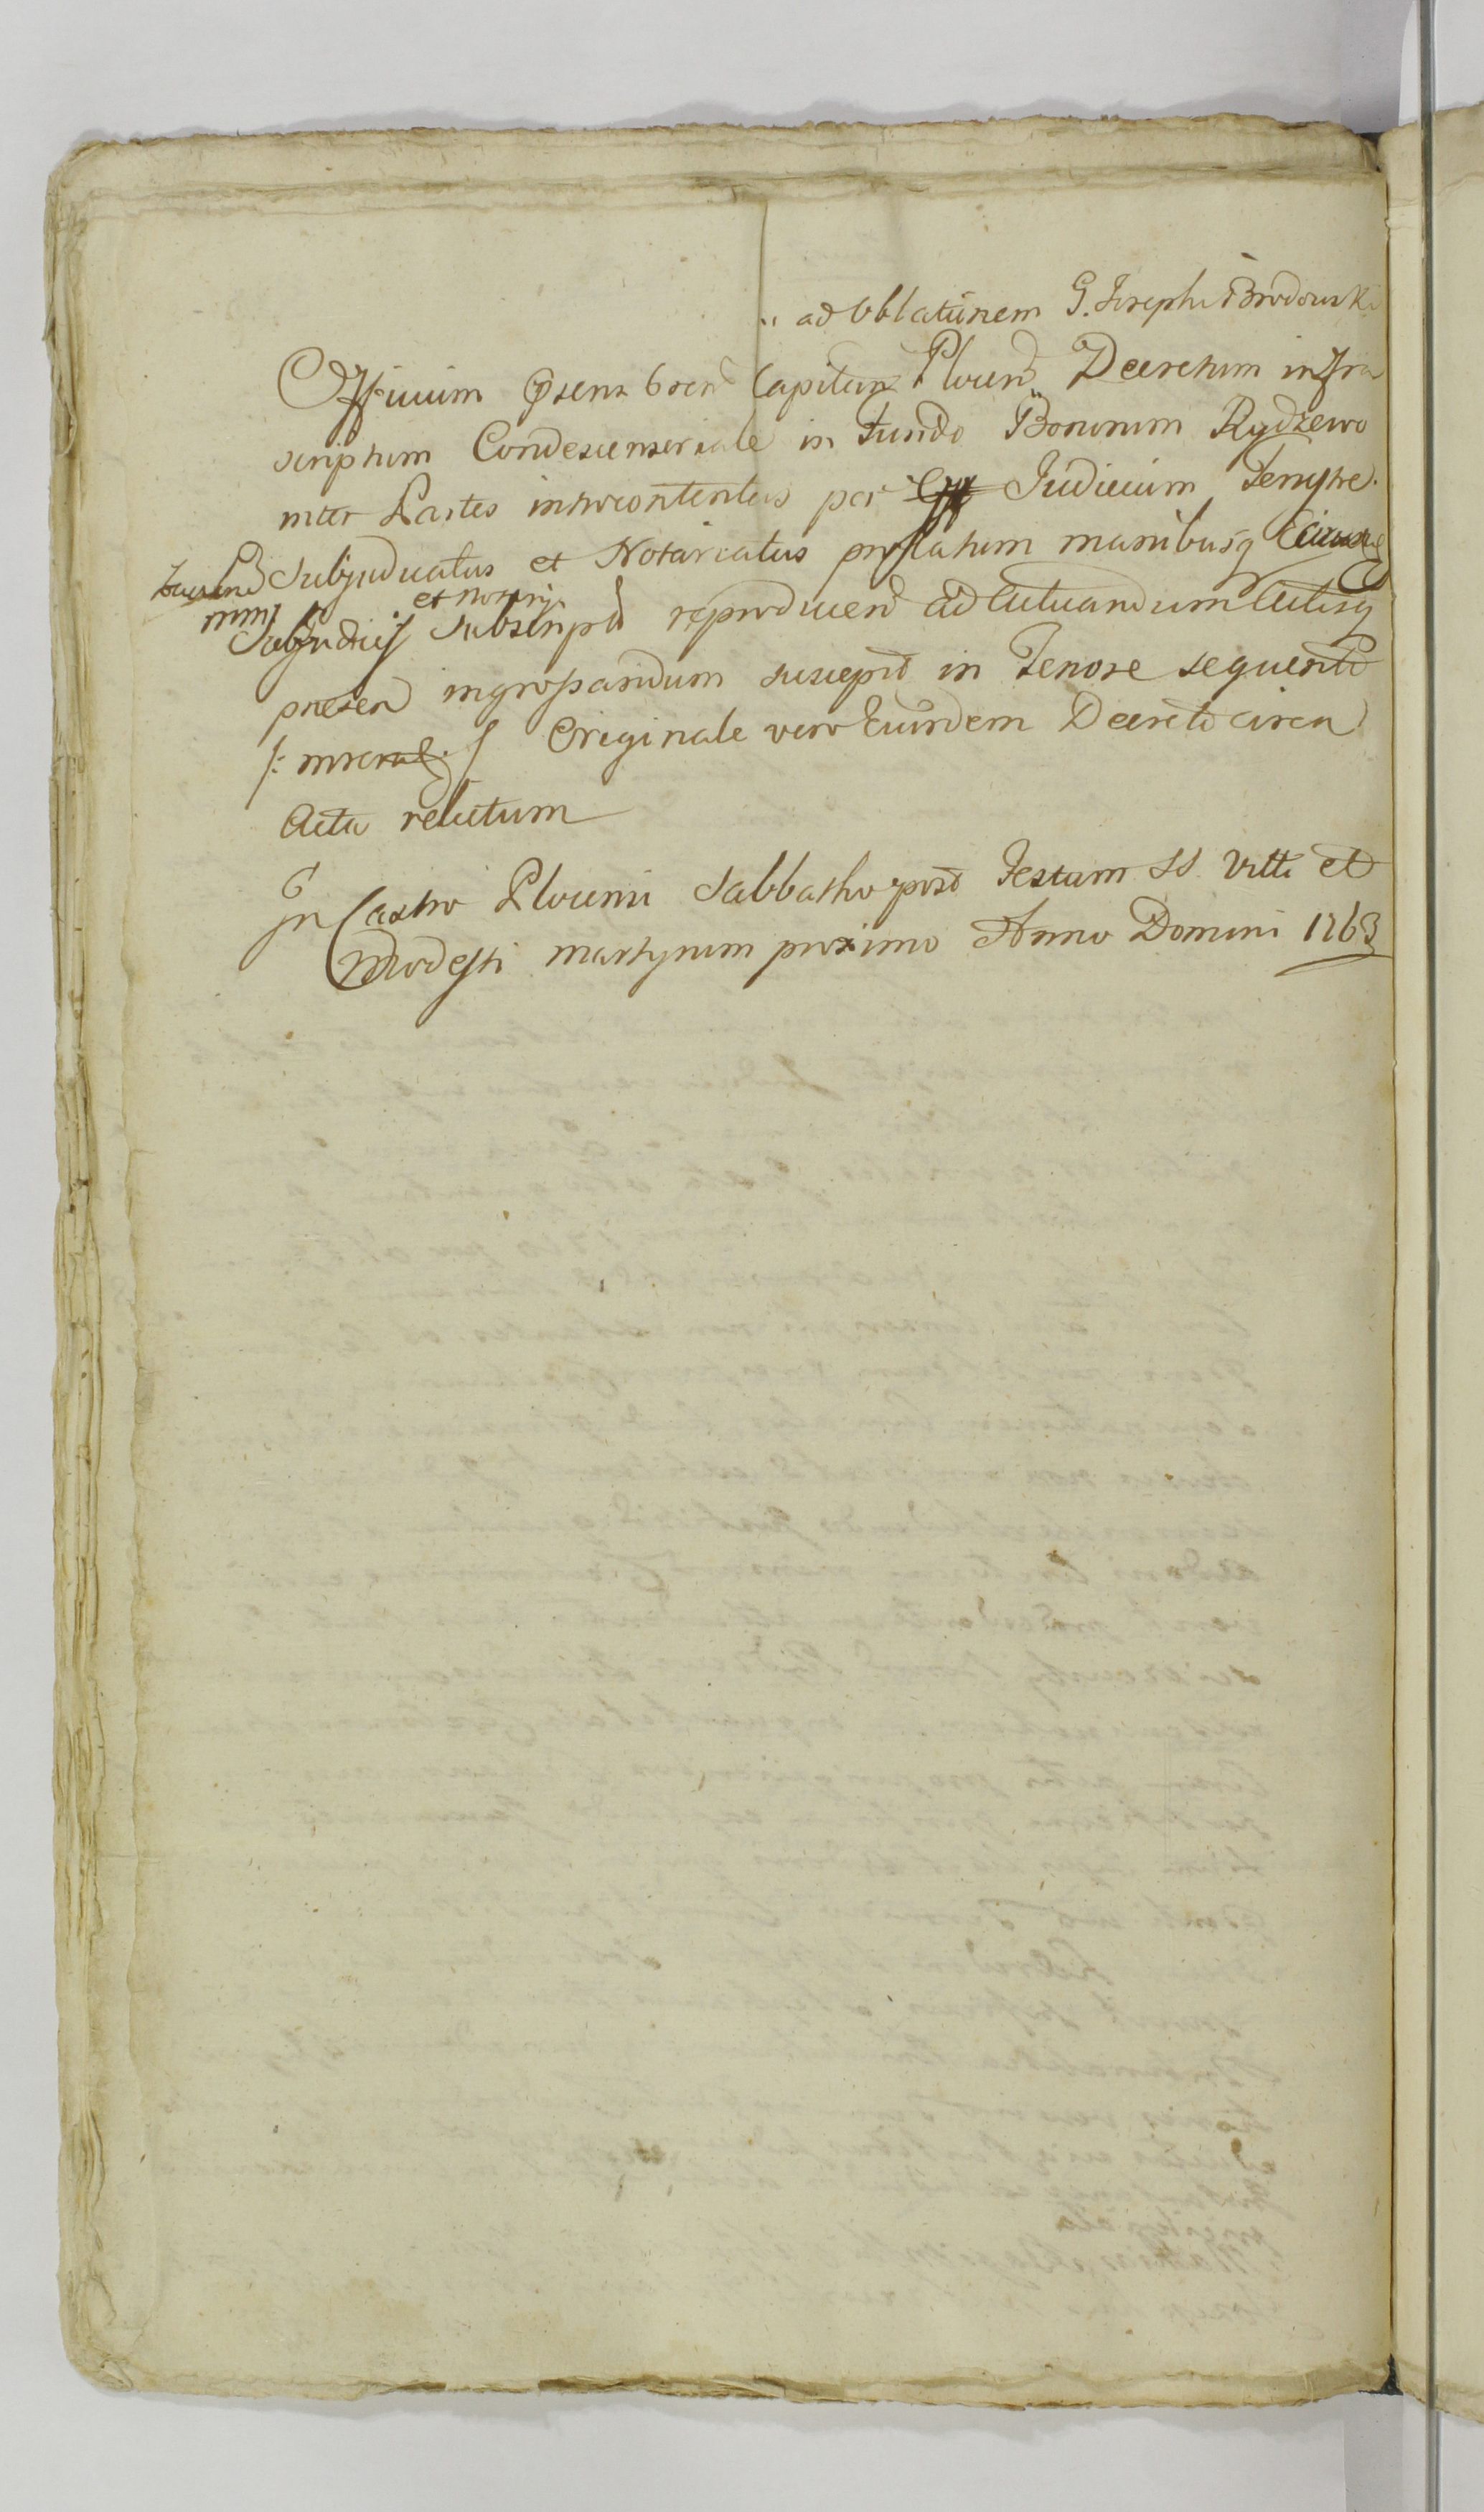 " ad Oblationem G. Josephi Brodowski
Officium Præsens Cren Capitan Plocen Decretum infra
scriptum Condescensoriale in Fundo Bonorum Rydzewo
inter Partes introcontentas per Judicium Tenythe
Subjudicatus et Notariatus prolatum manibusq
et Notarij
Subjudicis Subscript reproducen ad Actuandum Actisq
presen ingrossandum suscepit in Tenore sequenti
/: inserat :/ Originale vero Eiusdem Decreti circa
Acta relictum
In Castro Plocensi Sabbatho post Festum SS. Vitti et
Modesti martyrum proximo Anno Domini 1763